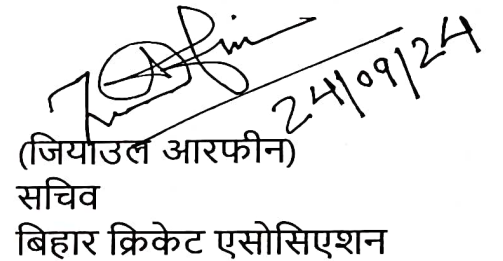 24/09/24
(जियाउल आरफीन)
सचिव
बिहार क्रिकेट एसोसिएशन